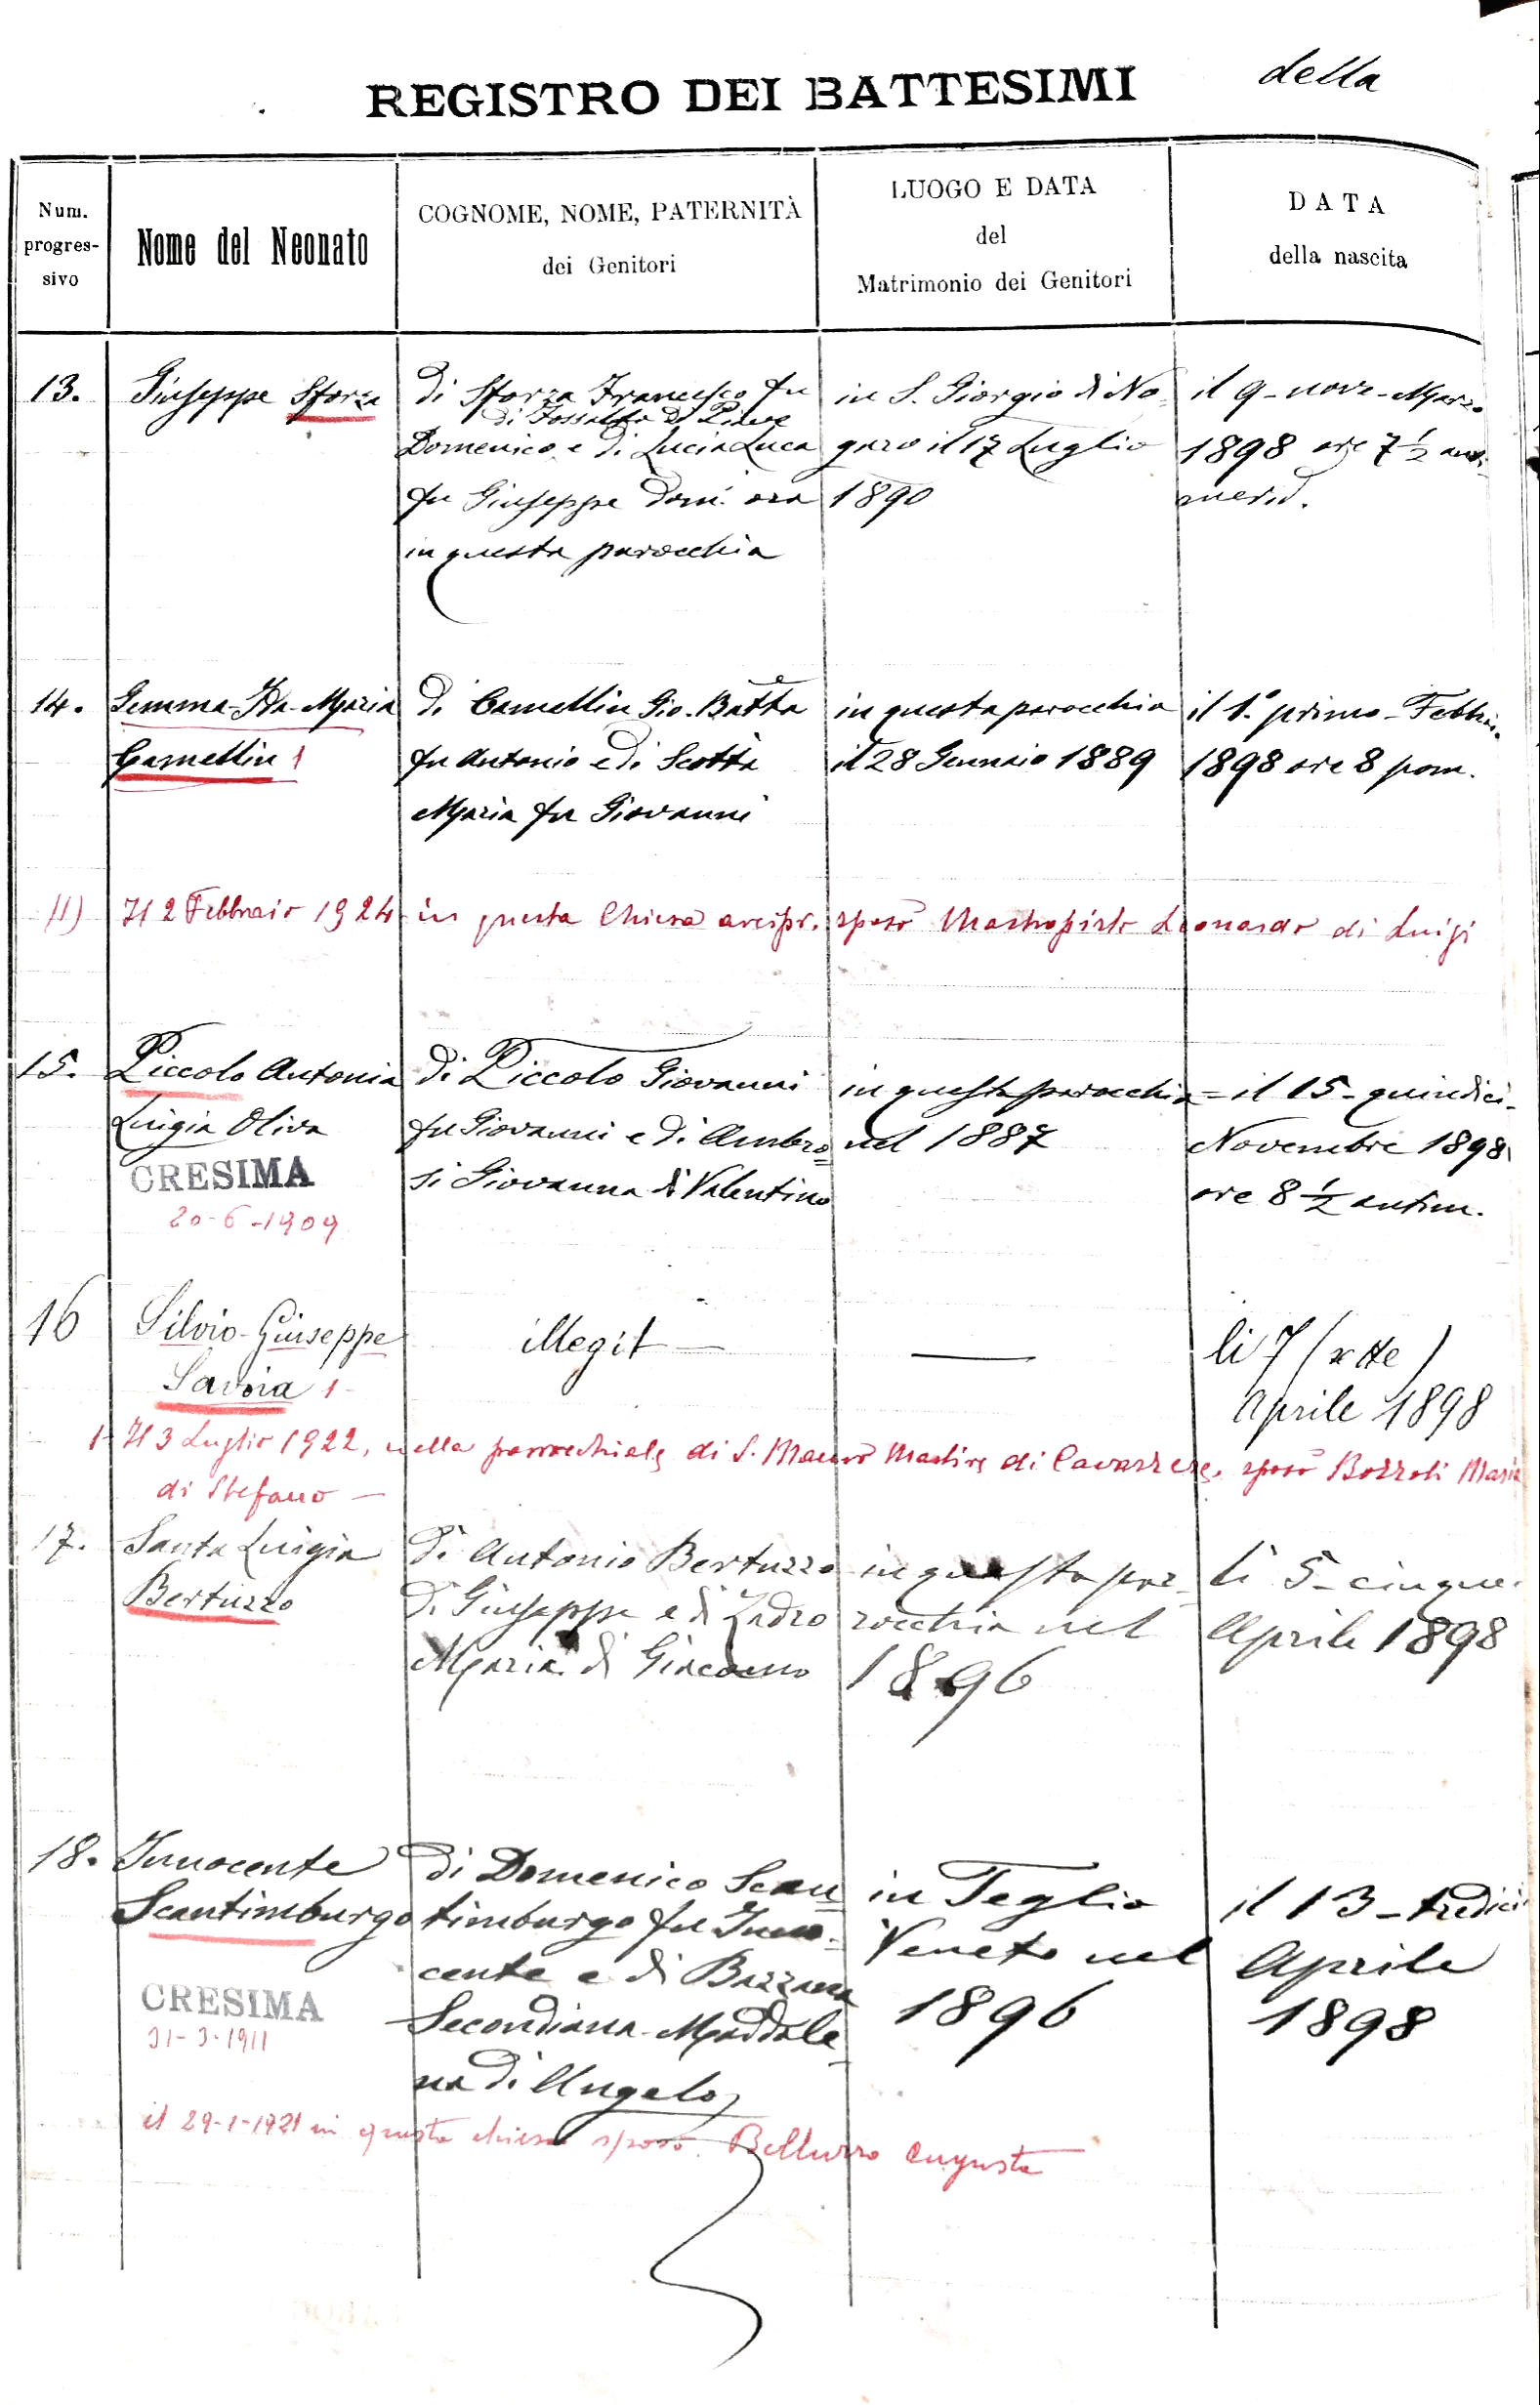 della
REGISTRO DEI BATTESIMI
Num.
progres-
sivo
Nome del Neonato
COGNOME, NOME, PATERNITÀ
dei Genitori
LUOGO E DATA
del
Matrimonio dei Genitori
DATA
della nascita
13.
Giuseppe Sforza
di Sforza Francesco fu
di Fossalta di Piave
Domenico e di Lucia Luca
fu Giuseppe dom. ora
in questa parocchia
in S. Giorgio di No
garo il 17 Luglio
1890
il 9 - nove - Marzo
1898 ore 7 1/2 anti
merid.
14.
Gemma-Ida-Maria
Camellin 1
di Camellin Gio. Batta
fu Antonio e di Scotta
Maria fu Giovanni
in questa parocchia
il 28 Gennaio 1889
il 1.° primo - Febbr.
1898 ore 8 pom.
11) Il 2 Febbraio 1924 in questa Chiesa arcipr. sposò Leonardo di Luigi
15.
Piccolo Antonia
Luigia Oliva
CRESIMA
20-6-1909
di Piccolo Giovanni
fu Giovanni e di Ambro=
si Giovanna di Valentino
in questa parocchia
nel 1887
= il 15 - quindici -
Novembre 1898
ore 8 1/2 antim.
16
Silvio-Giuseppe
Savoia 1
illegit —
li 7 (sette)
Aprile 1898
1- Il 3 Luglio 1922, nella parrocchiale di S. Mauro Martire di Cavarzere, sposò Bozzoli Maria
di Stefano —
17.
Santa Luigia
Bertuzzo
di Antonio Bertuzzo
di Giuseppe e di Zadro
Maria di Giacomo
in questa par-
rocchia nel
1896
li 5 - cinque
Aprile 1898
18.
Innocente
Scantimburgo
CRESIMA
31-3-1911
di Domenico Scan
timburgo fu Inno=
cente e di Bazzana
Secondiana-Maddale
na di Angelo
in Teglio
Veneto nel
1896
il 13 - tredici
Aprile
1898
il 29-1-1921 in questa chiesa sposò Belluzzo Augusta